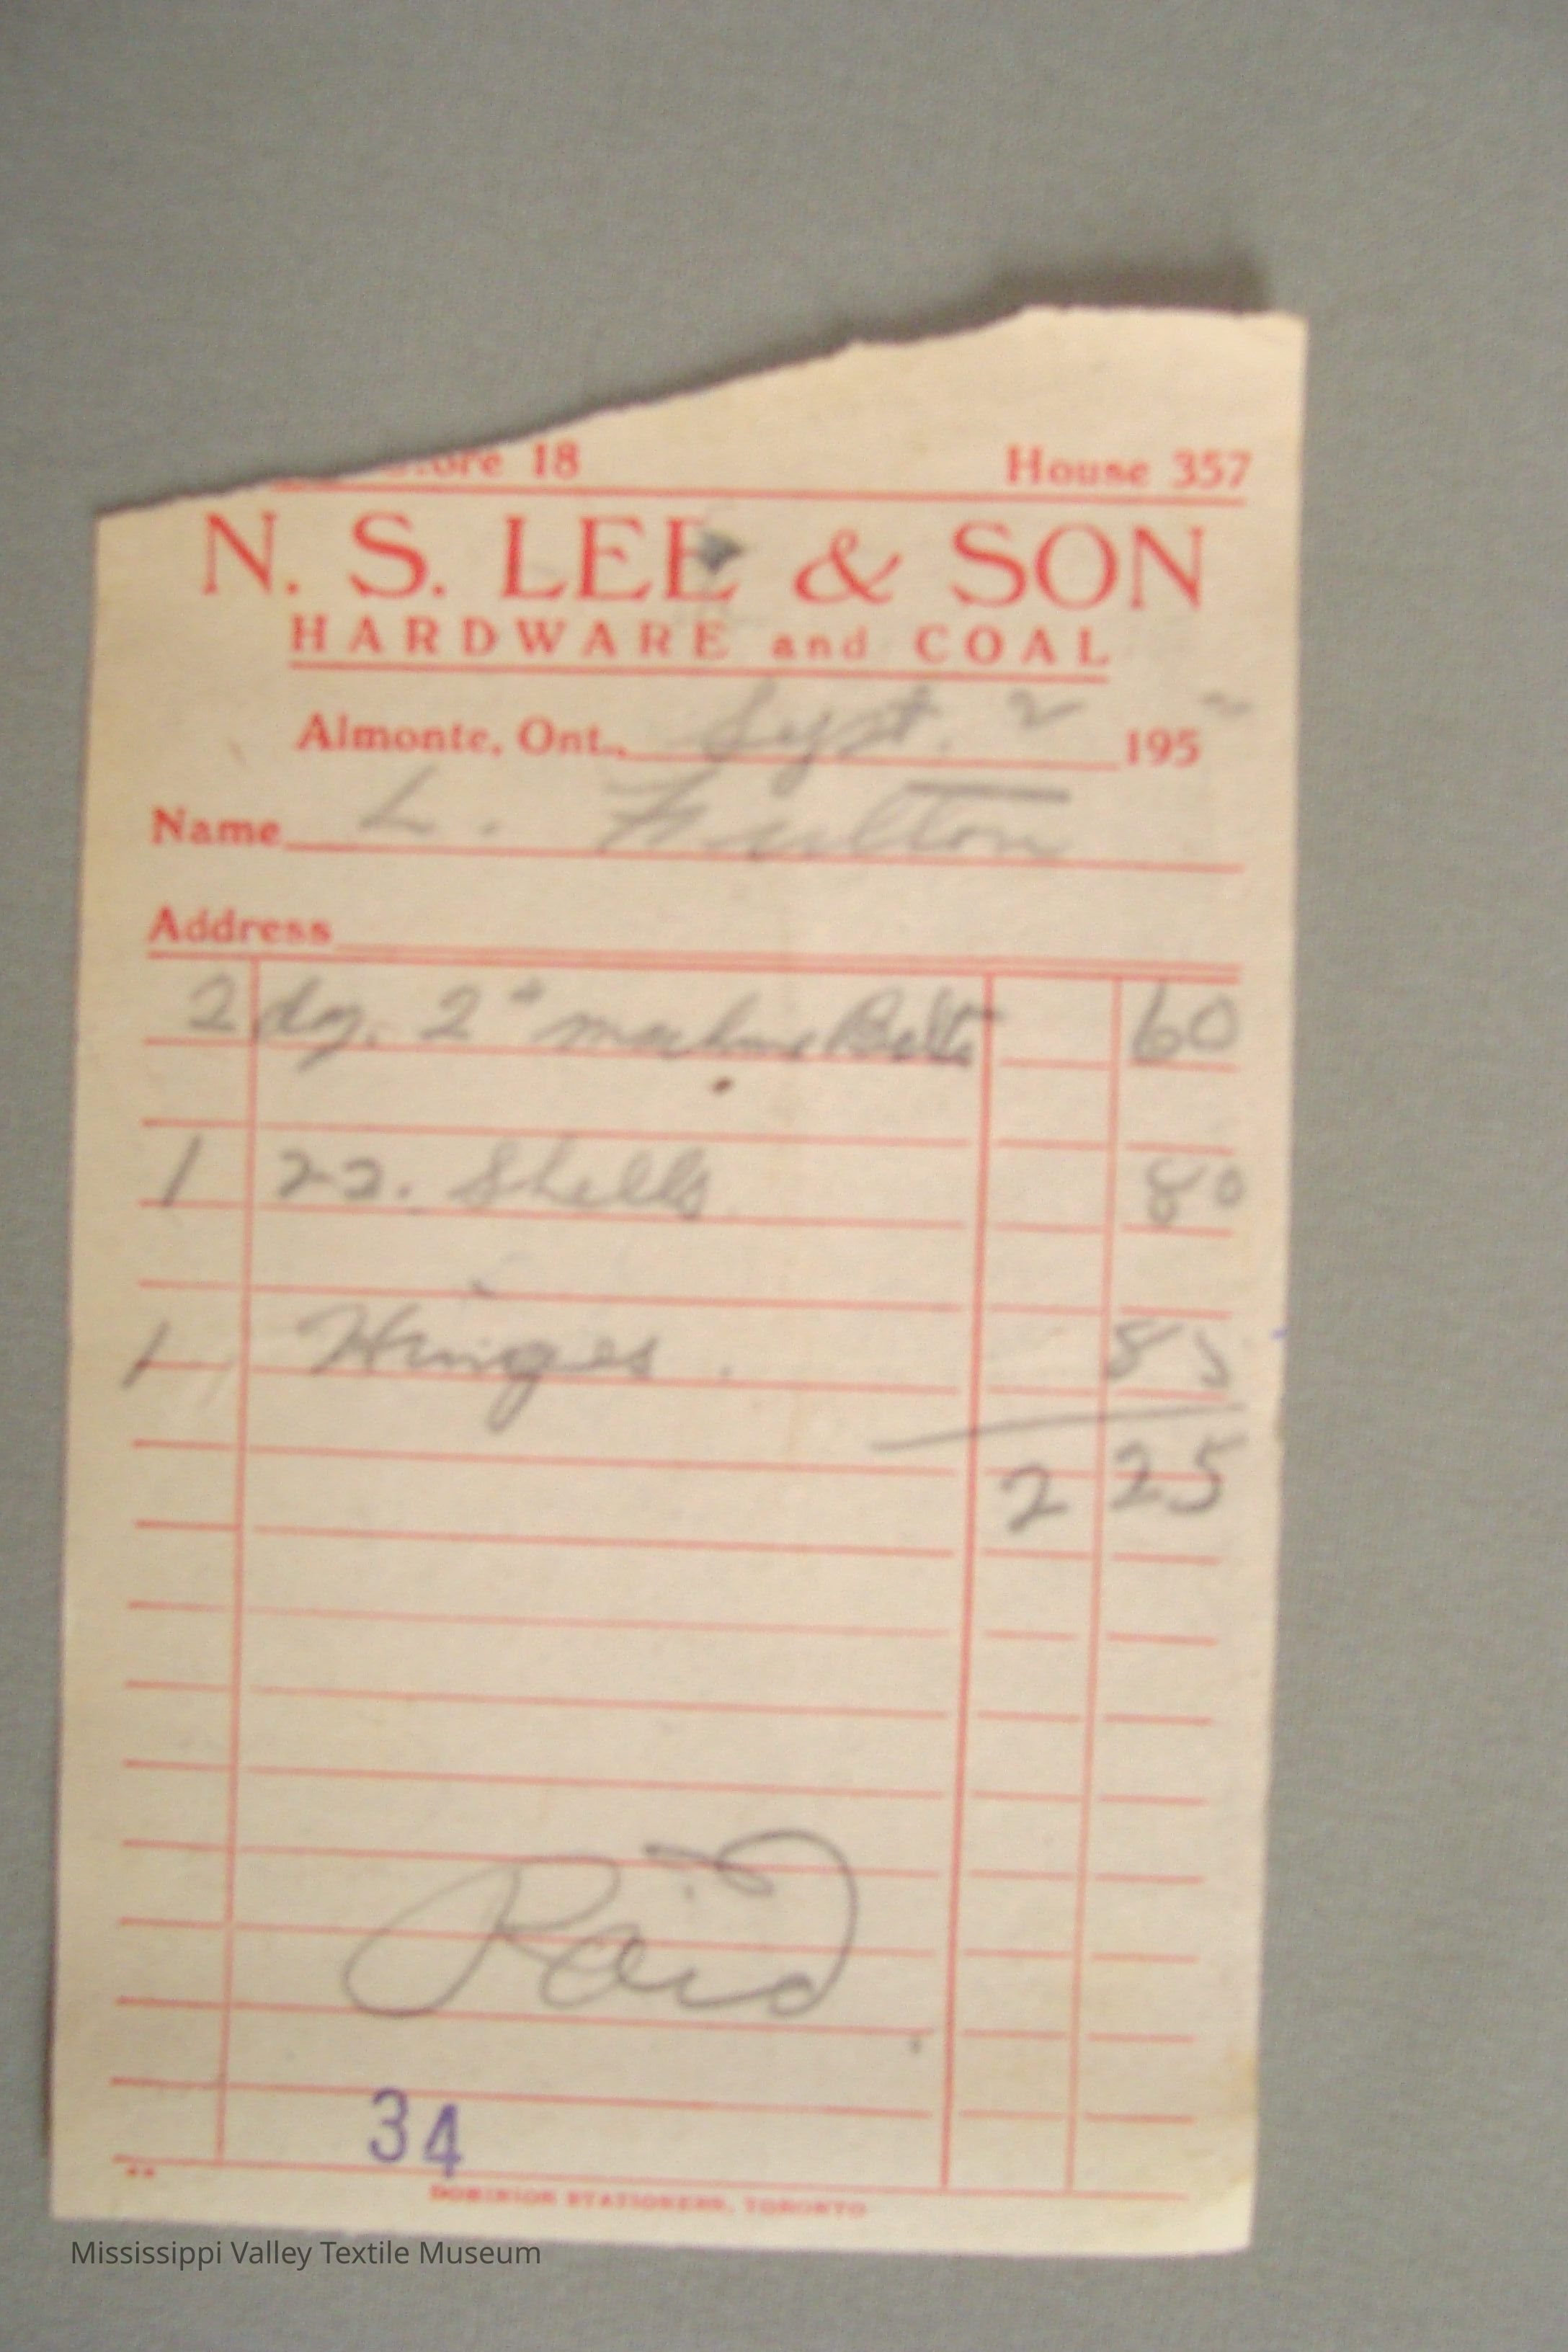 Store 18 House 357
N. S. LEE & SON
HARDWARE and COAL
Almonte, Ont., Sept. 2 1952
Name L. Fulton
Address
2 doz. 2" machine Bolts 60
1 22. Shells 80
1 Hinges. 85
2 25
Paid
34
DOMINION STATIONERS, TORONTO
Mississippi Valley Textile Museum